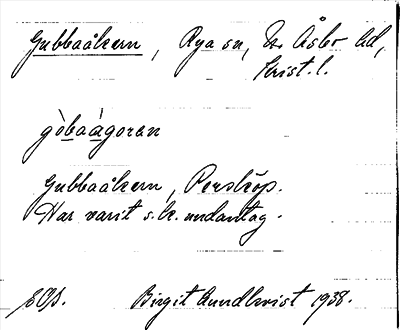 Gubbaåkern, Rya sn, N. Åsbo hd,
Krist. l.
gòbaàgoran
Gubbaåkern, Perstorp.
Har varit s.k. undantag.
Birgit Lundkvist 1938.